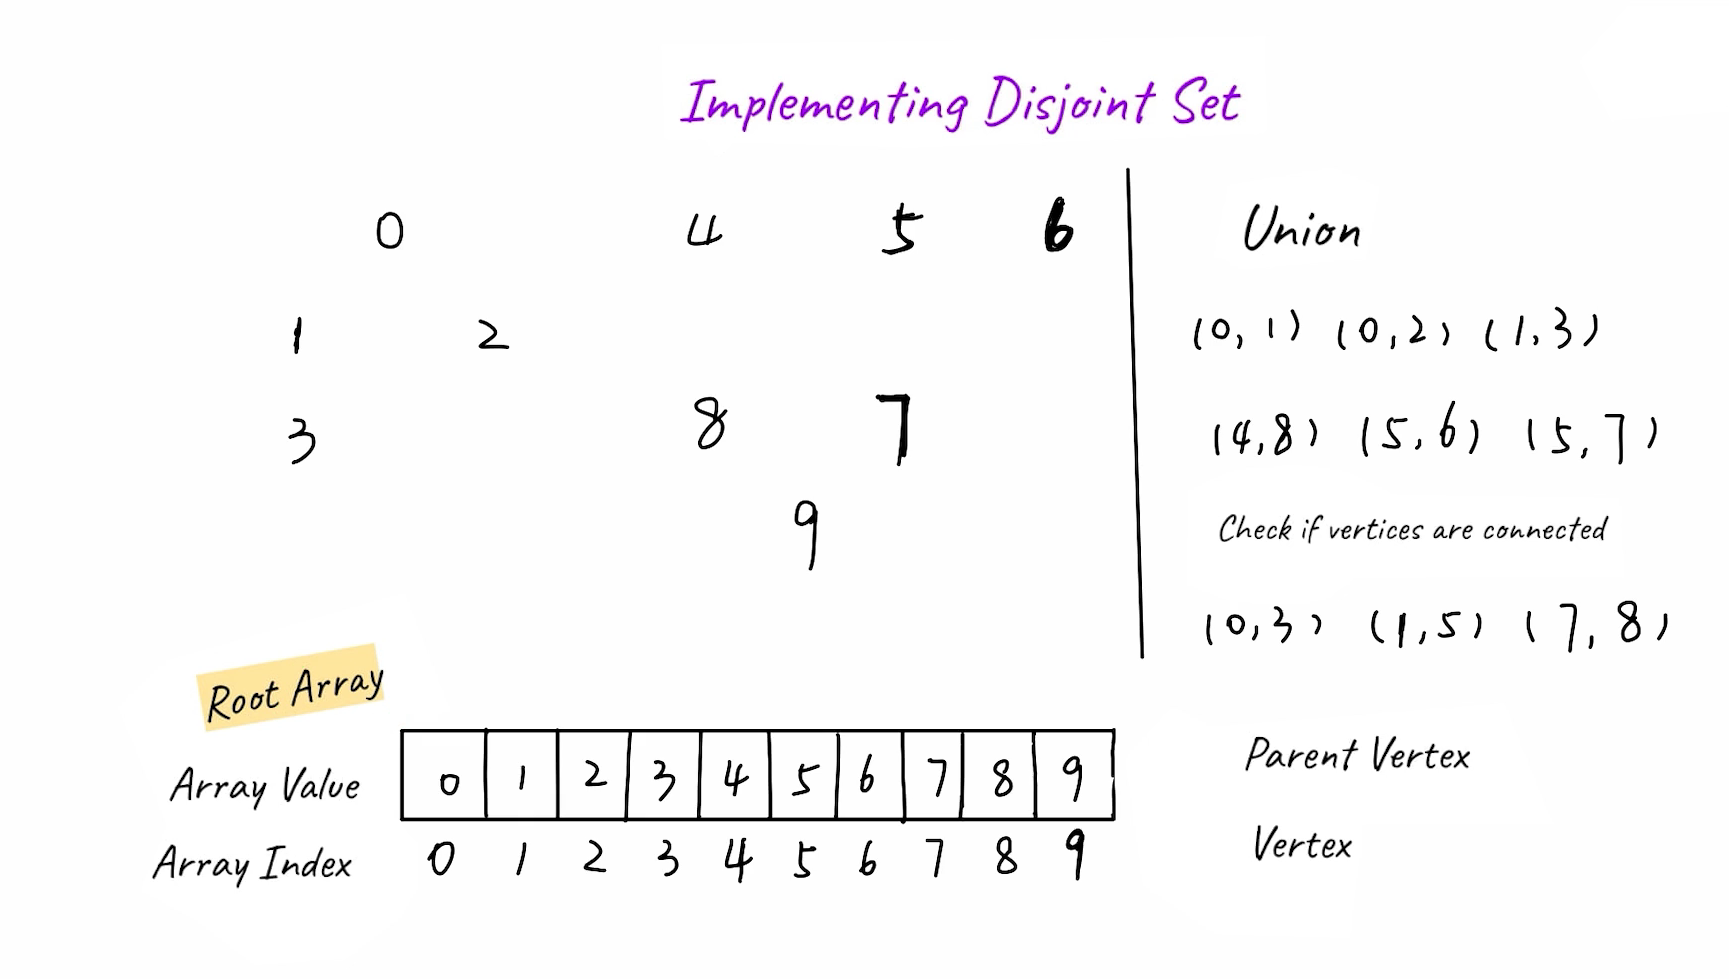 Implementing Disjoint Set
0 4 5 6
1 2
3 8 7
9
Union
(0, 1) (0,2) (1,3)
(4,8) (5,6) (5,7)
Check if vertices are connected
(0,3) (1,5) (7,8)
Root Array
Array Value 0 1 2 3 4 5 6 7 8 9 Parent Vertex
Array Index 0 1 2 3 4 5 6 7 8 9 Vertex